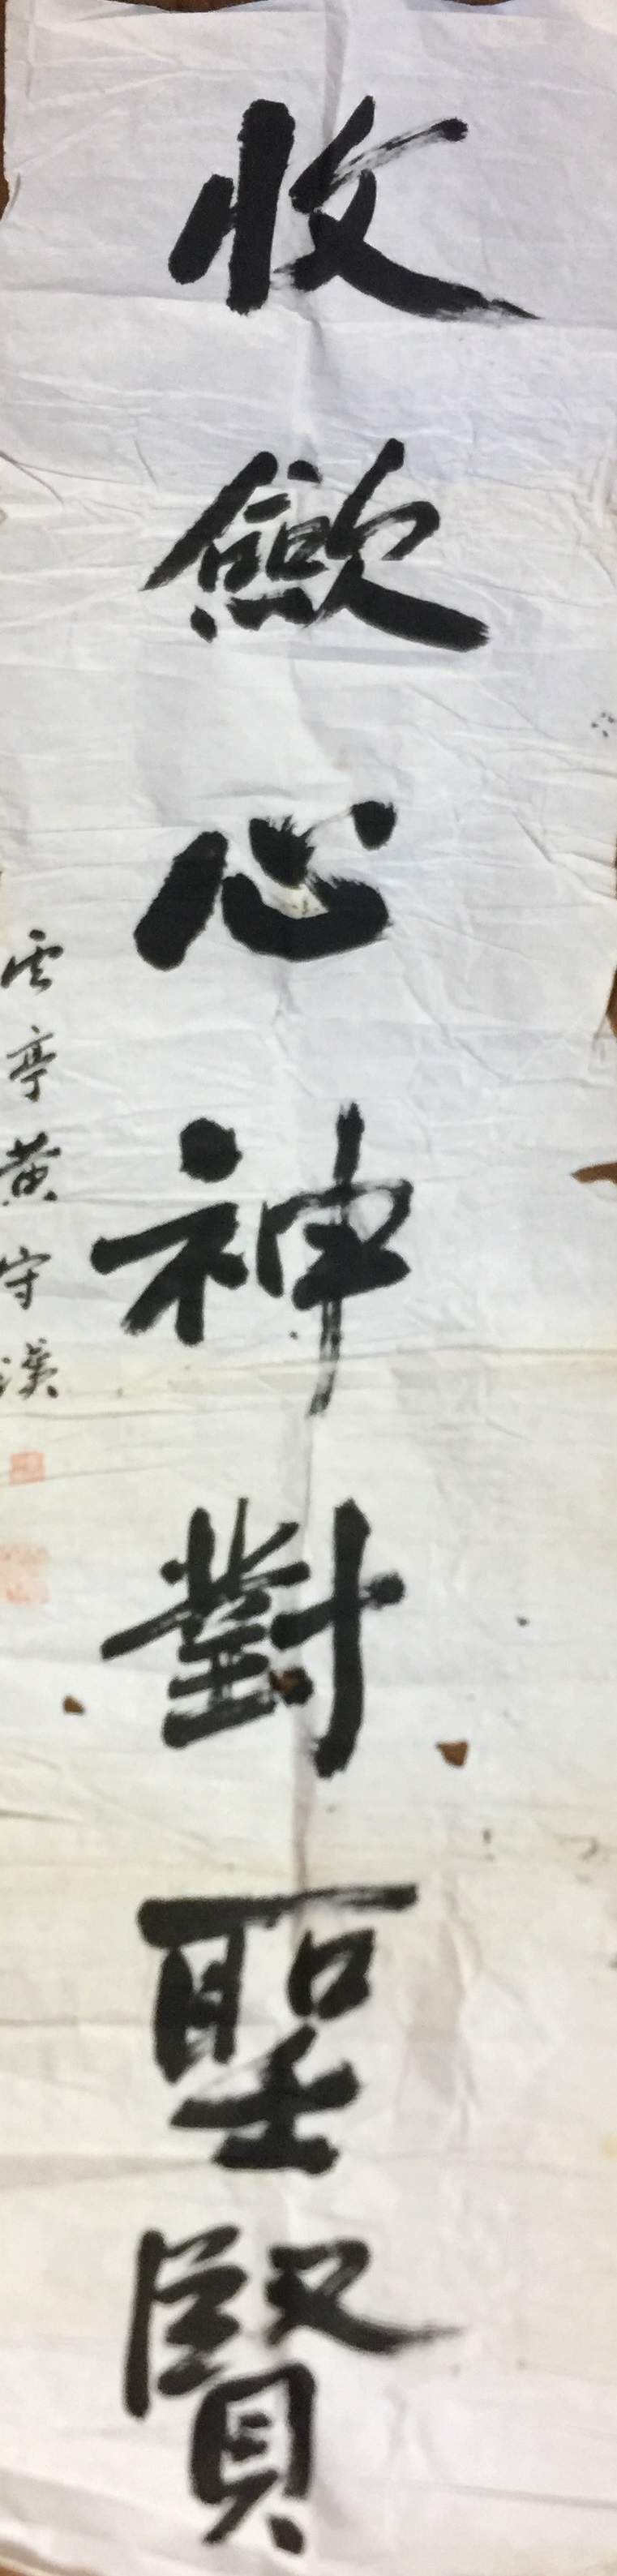 收斂心神對聖賢
雲亭黄守漢